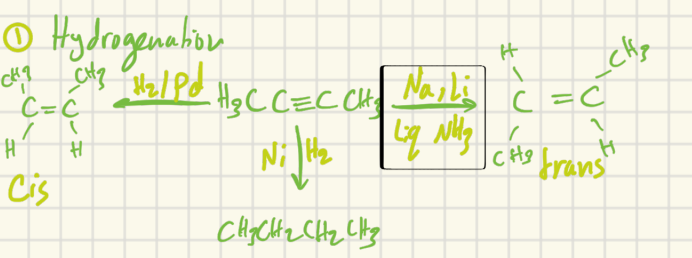 ① Hydrogenation
CH3 CH3
C=C
H H
Cis
H2/Pd
H3C C≡C CH3
Na, Li
Liq NH3
H CH3
C = C
CH3 H
trans
Ni H2
CH3CH2CH2CH3